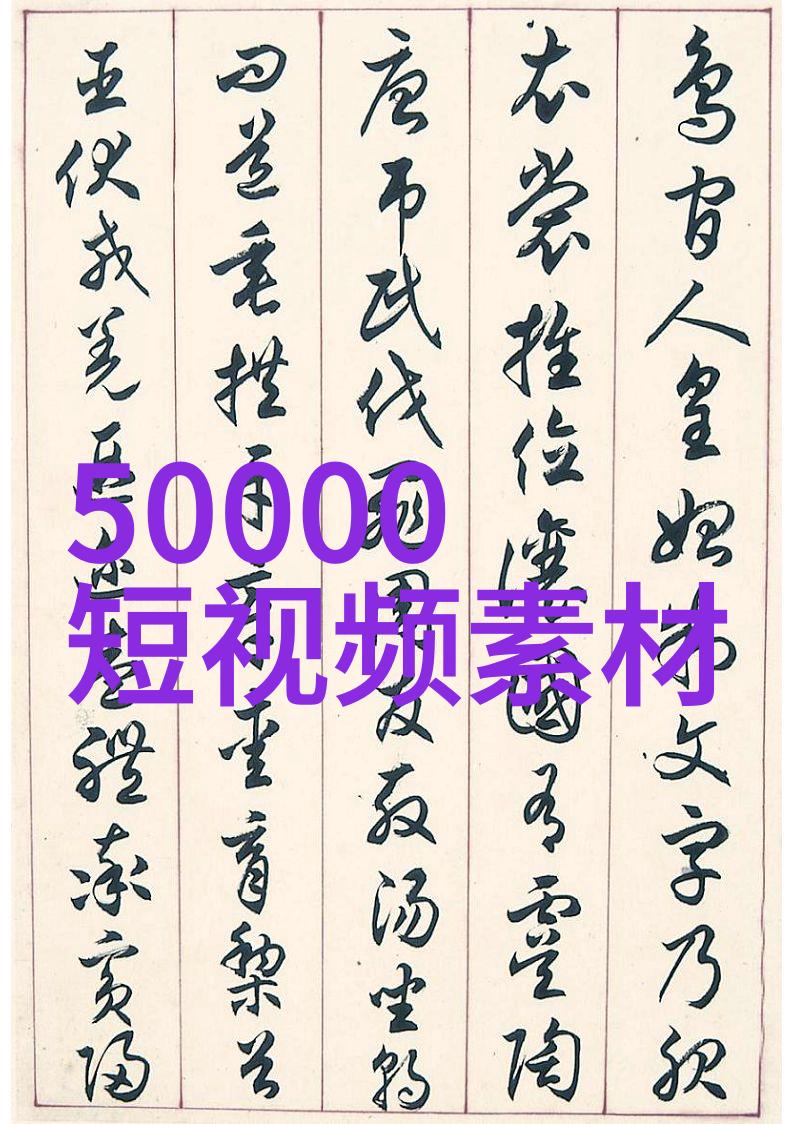 鳥官人皇始制文字乃服
衣裳推位讓國有虞陶
唐弔民伐罪周發殷湯坐朝
問道垂拱平章愛育黎首
臣伏戎羌遐邇壹體率賓歸
50000
短视频素材